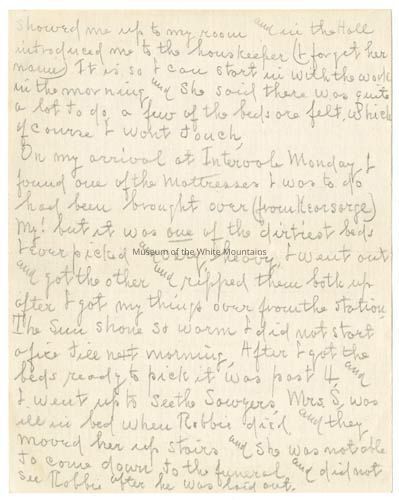 showed me up to my room and in the Hall
introduced me to the houskeeper (I forget her
name) It is so I can start in with the work
in the morning and She said there was quite
a lot to do, a few of the beds are felt, which
of course I wont touch.
On my arrival at Intervale Monday I
found one of the Mattresses I was to do
had been brought over (from Kearsarge)
My! but it was one of the dirtiest beds
I ever picked and very heavy, I went out
and got the other and ripped them both up
after I got my things over from the station
The Sun shone so warm I did not start
a fire till next morning, After I got the
beds ready to pick it was past 4, and
I went up to see the Sawyers, Mrs S. was
ill in bed when Robbie died and they
moved her up stairs and She was not able
to come down to the funeral and did not
see Robbie after he was laid out.
Museum of the White Mountains